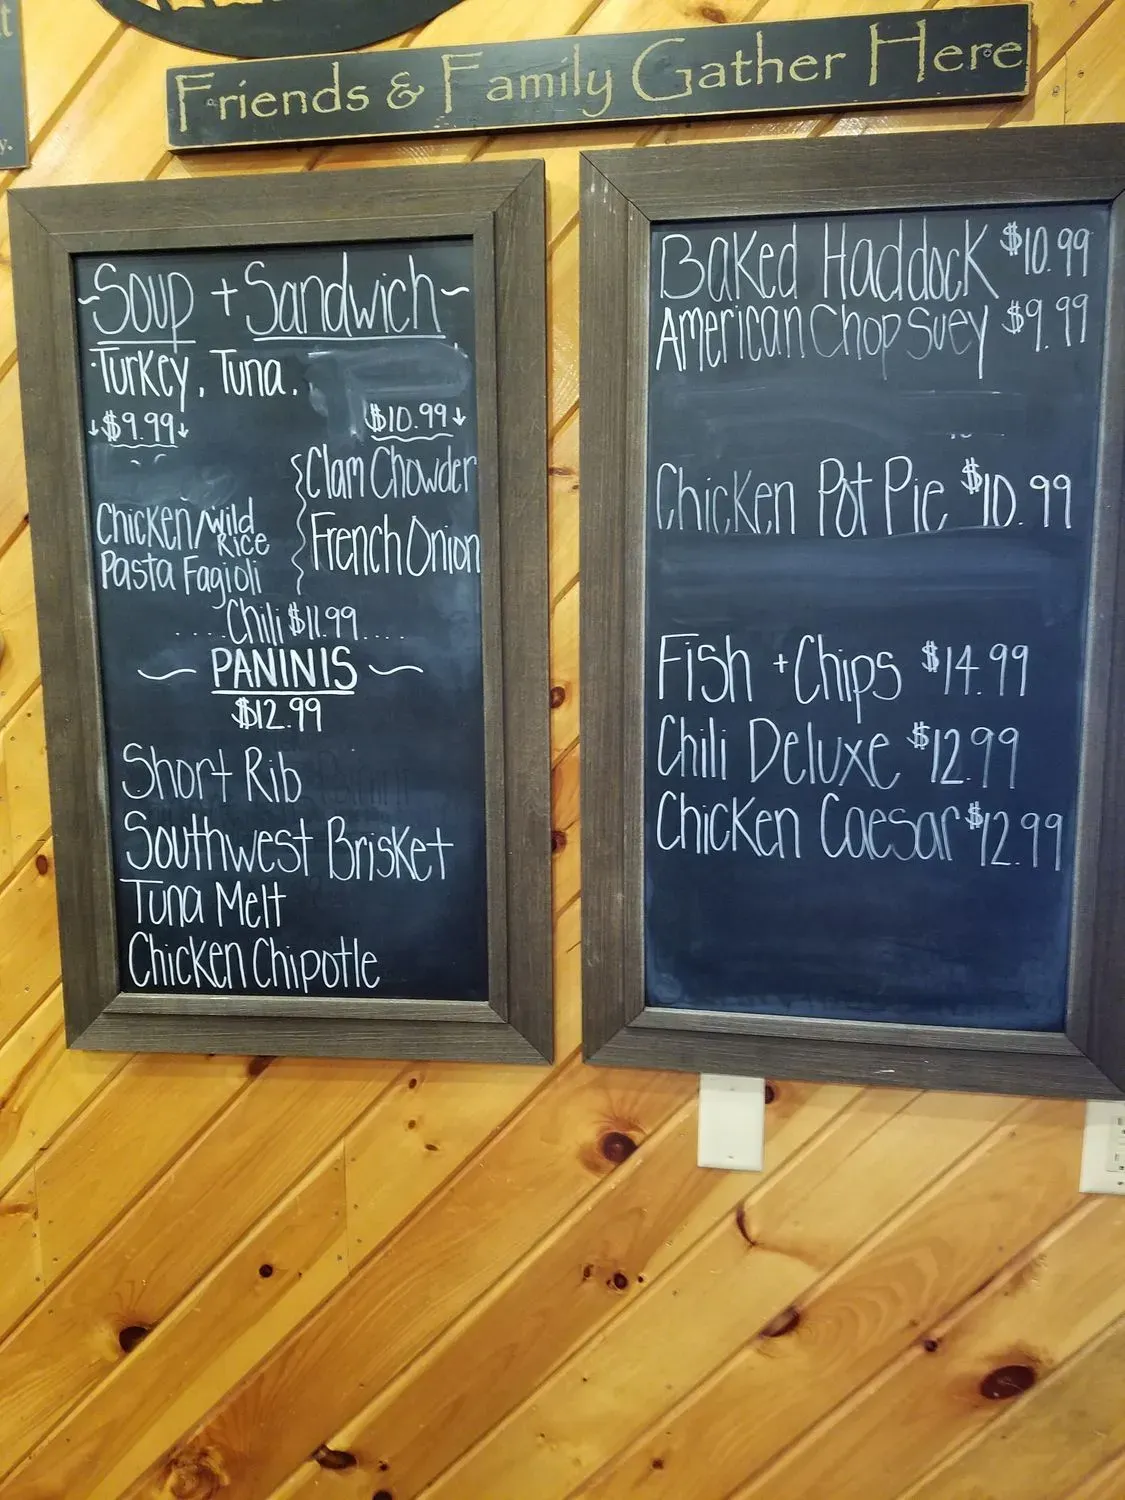 Friends & Family Gather Here
~Soup + Sandwich~
Turkey, Tuna.
↓$9.99↓
$10.99↓
Clam Chowder
Chicken/Wild Rice
French Onion
Pasta Fagioli
....Chili $11.99....
~ PANINIS ~
$12.99
Short Rib
Southwest Brisket
Tuna Melt
Chicken Chipotle
Baked Haddock $10.99
American Chop Suey $9.99
Chicken Pot Pie $10.99
Fish + Chips $14.99
Chili Deluxe $12.99
Chicken Caesar $12.99